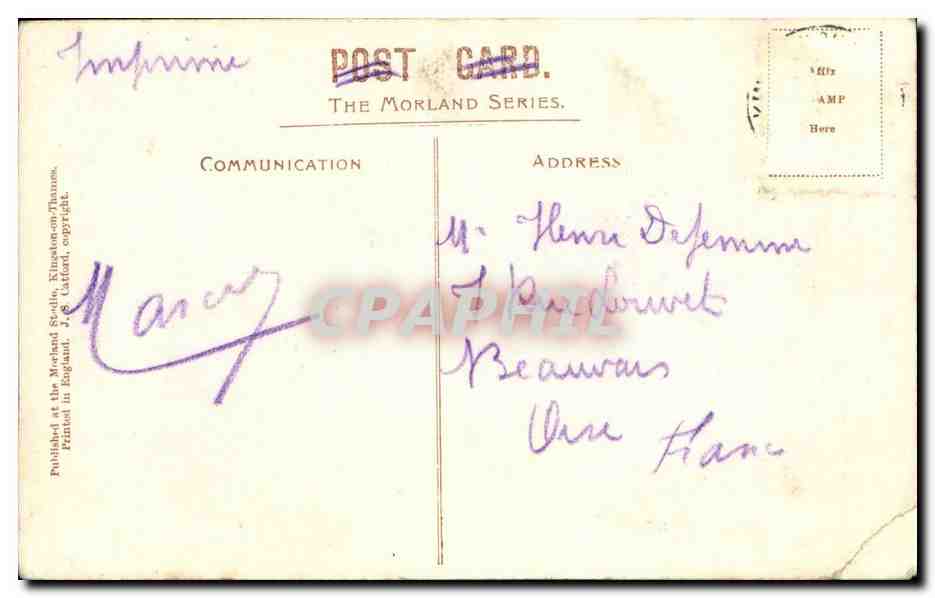 Imprimé
POST CARD.
THE MORLAND SERIES.
Affix
AMP
Here
COMMUNICATION
ADDRESS
Published at the Morland Studio, Kingston-on-Thames.
Printed in England. J. S. Catford, copyright.
Mr Henri Defemme
Beauvais
Oise France
CPAPHIL